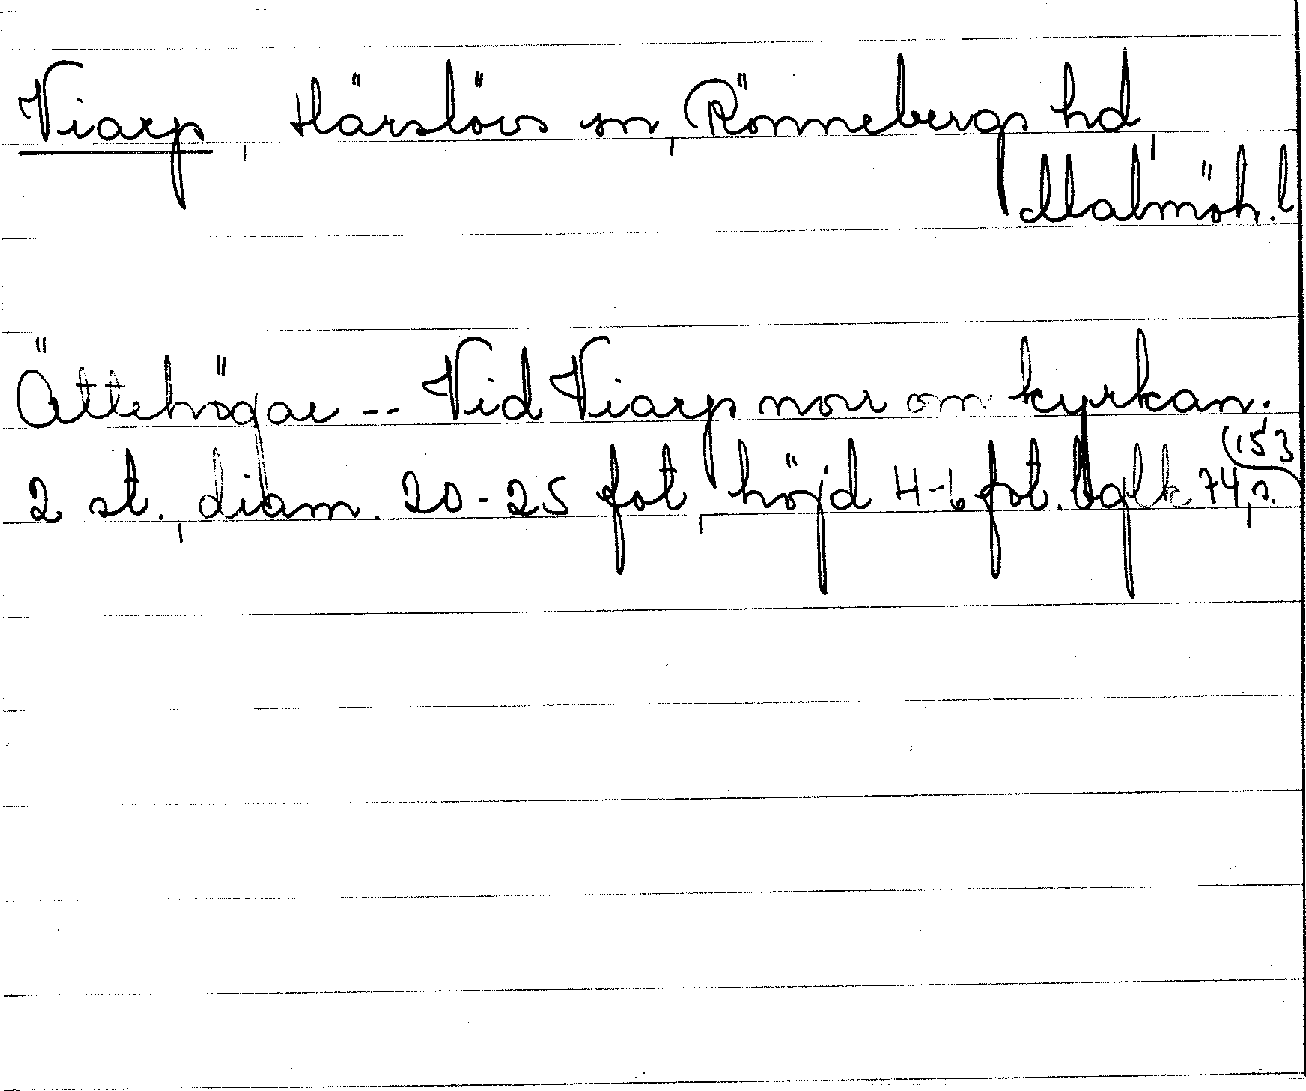 Viarp, Härslövs sn, Rönnebergs hd,
Malmöh. l
Ättehögar -- Vid Viarp norr om kyrkan.
2 st., diam. 20-25 fot, höjd 4-6 fot. 74, s.
153